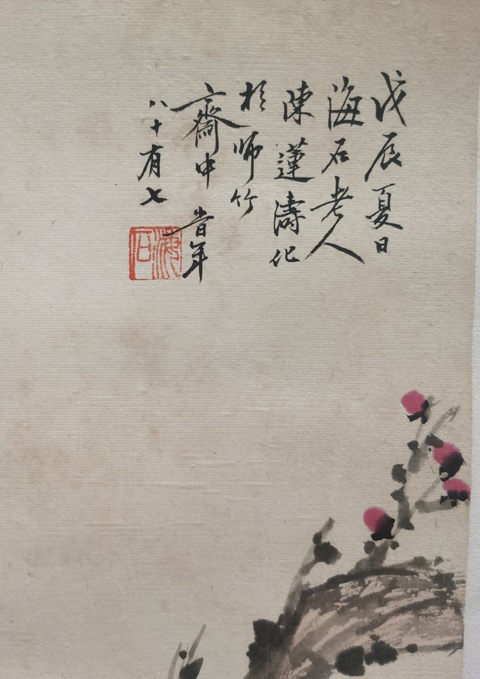 戊辰夏日
海石老人
陳蓮濤化
於師竹
齋中 昔年
八十有七
海石